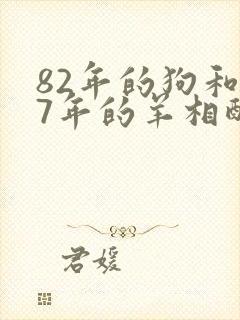 82年的狗和
7年的羊相配
君媛